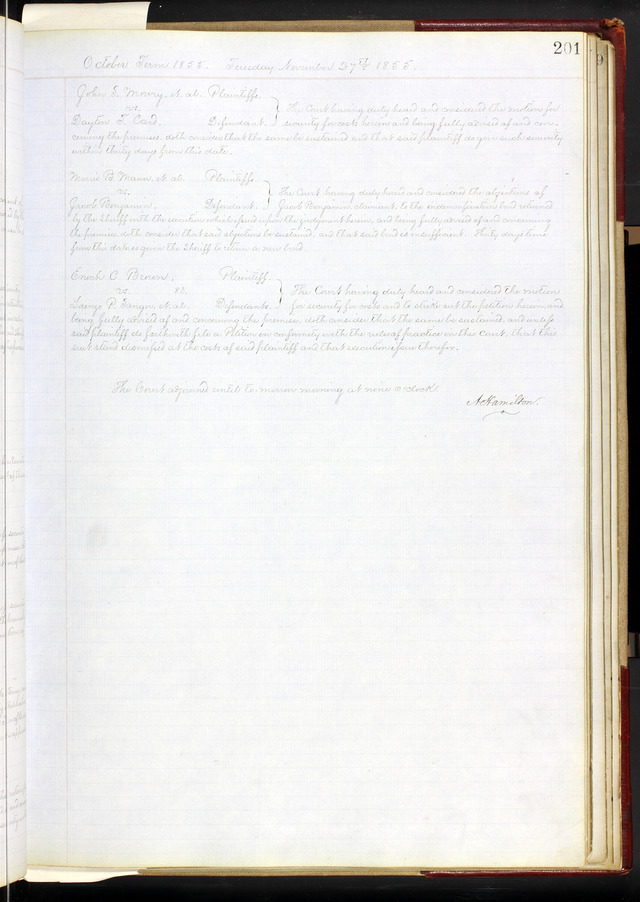 201
October Term 1855. Tuesday November 27th 1855.
John S. Mowry, et al. Plaintiffs
vs. The Court having duly heard and considered the motion for
Dayton T. Card. Defendant. security for costs herein and being fully advised of and con-
cerning the premises, doth consider that the same be sustained and that said plaintiff do give such security
within thirty days from this date.
Morris B. Mann, et al. Plaintiffs
vs. The Court having duly heard and considered the objections of
Jacob Benjamin. Defendant. Jacob Benjamin claimant, to the indemnification bond returned
by the Sheriff with the execution which issued upon the judgment herein, and being fully advised of and concerning
the premises, doth consider that said objections be sustained, and that said bond is insufficient. Thirty days time
from this date is given the Sheriff to return a new bond.
Enoch C. Brown, Plaintiff
vs. 83. The Court having duly heard and considered the motion
George P. Defendants. for security for costs and to strike out the petition herein and
being fully advised of and concerning the premises, doth consider that the same be sustained, and unless
said plaintiff do forthwith file a Petition in conformity with the rules of practice in this Court, that this
suit stand dismissed at the costs of said plaintiff and that execution issue therefor.
The Court adjourned until to-morrow morning at nine o'clock.
A. Hamilton.